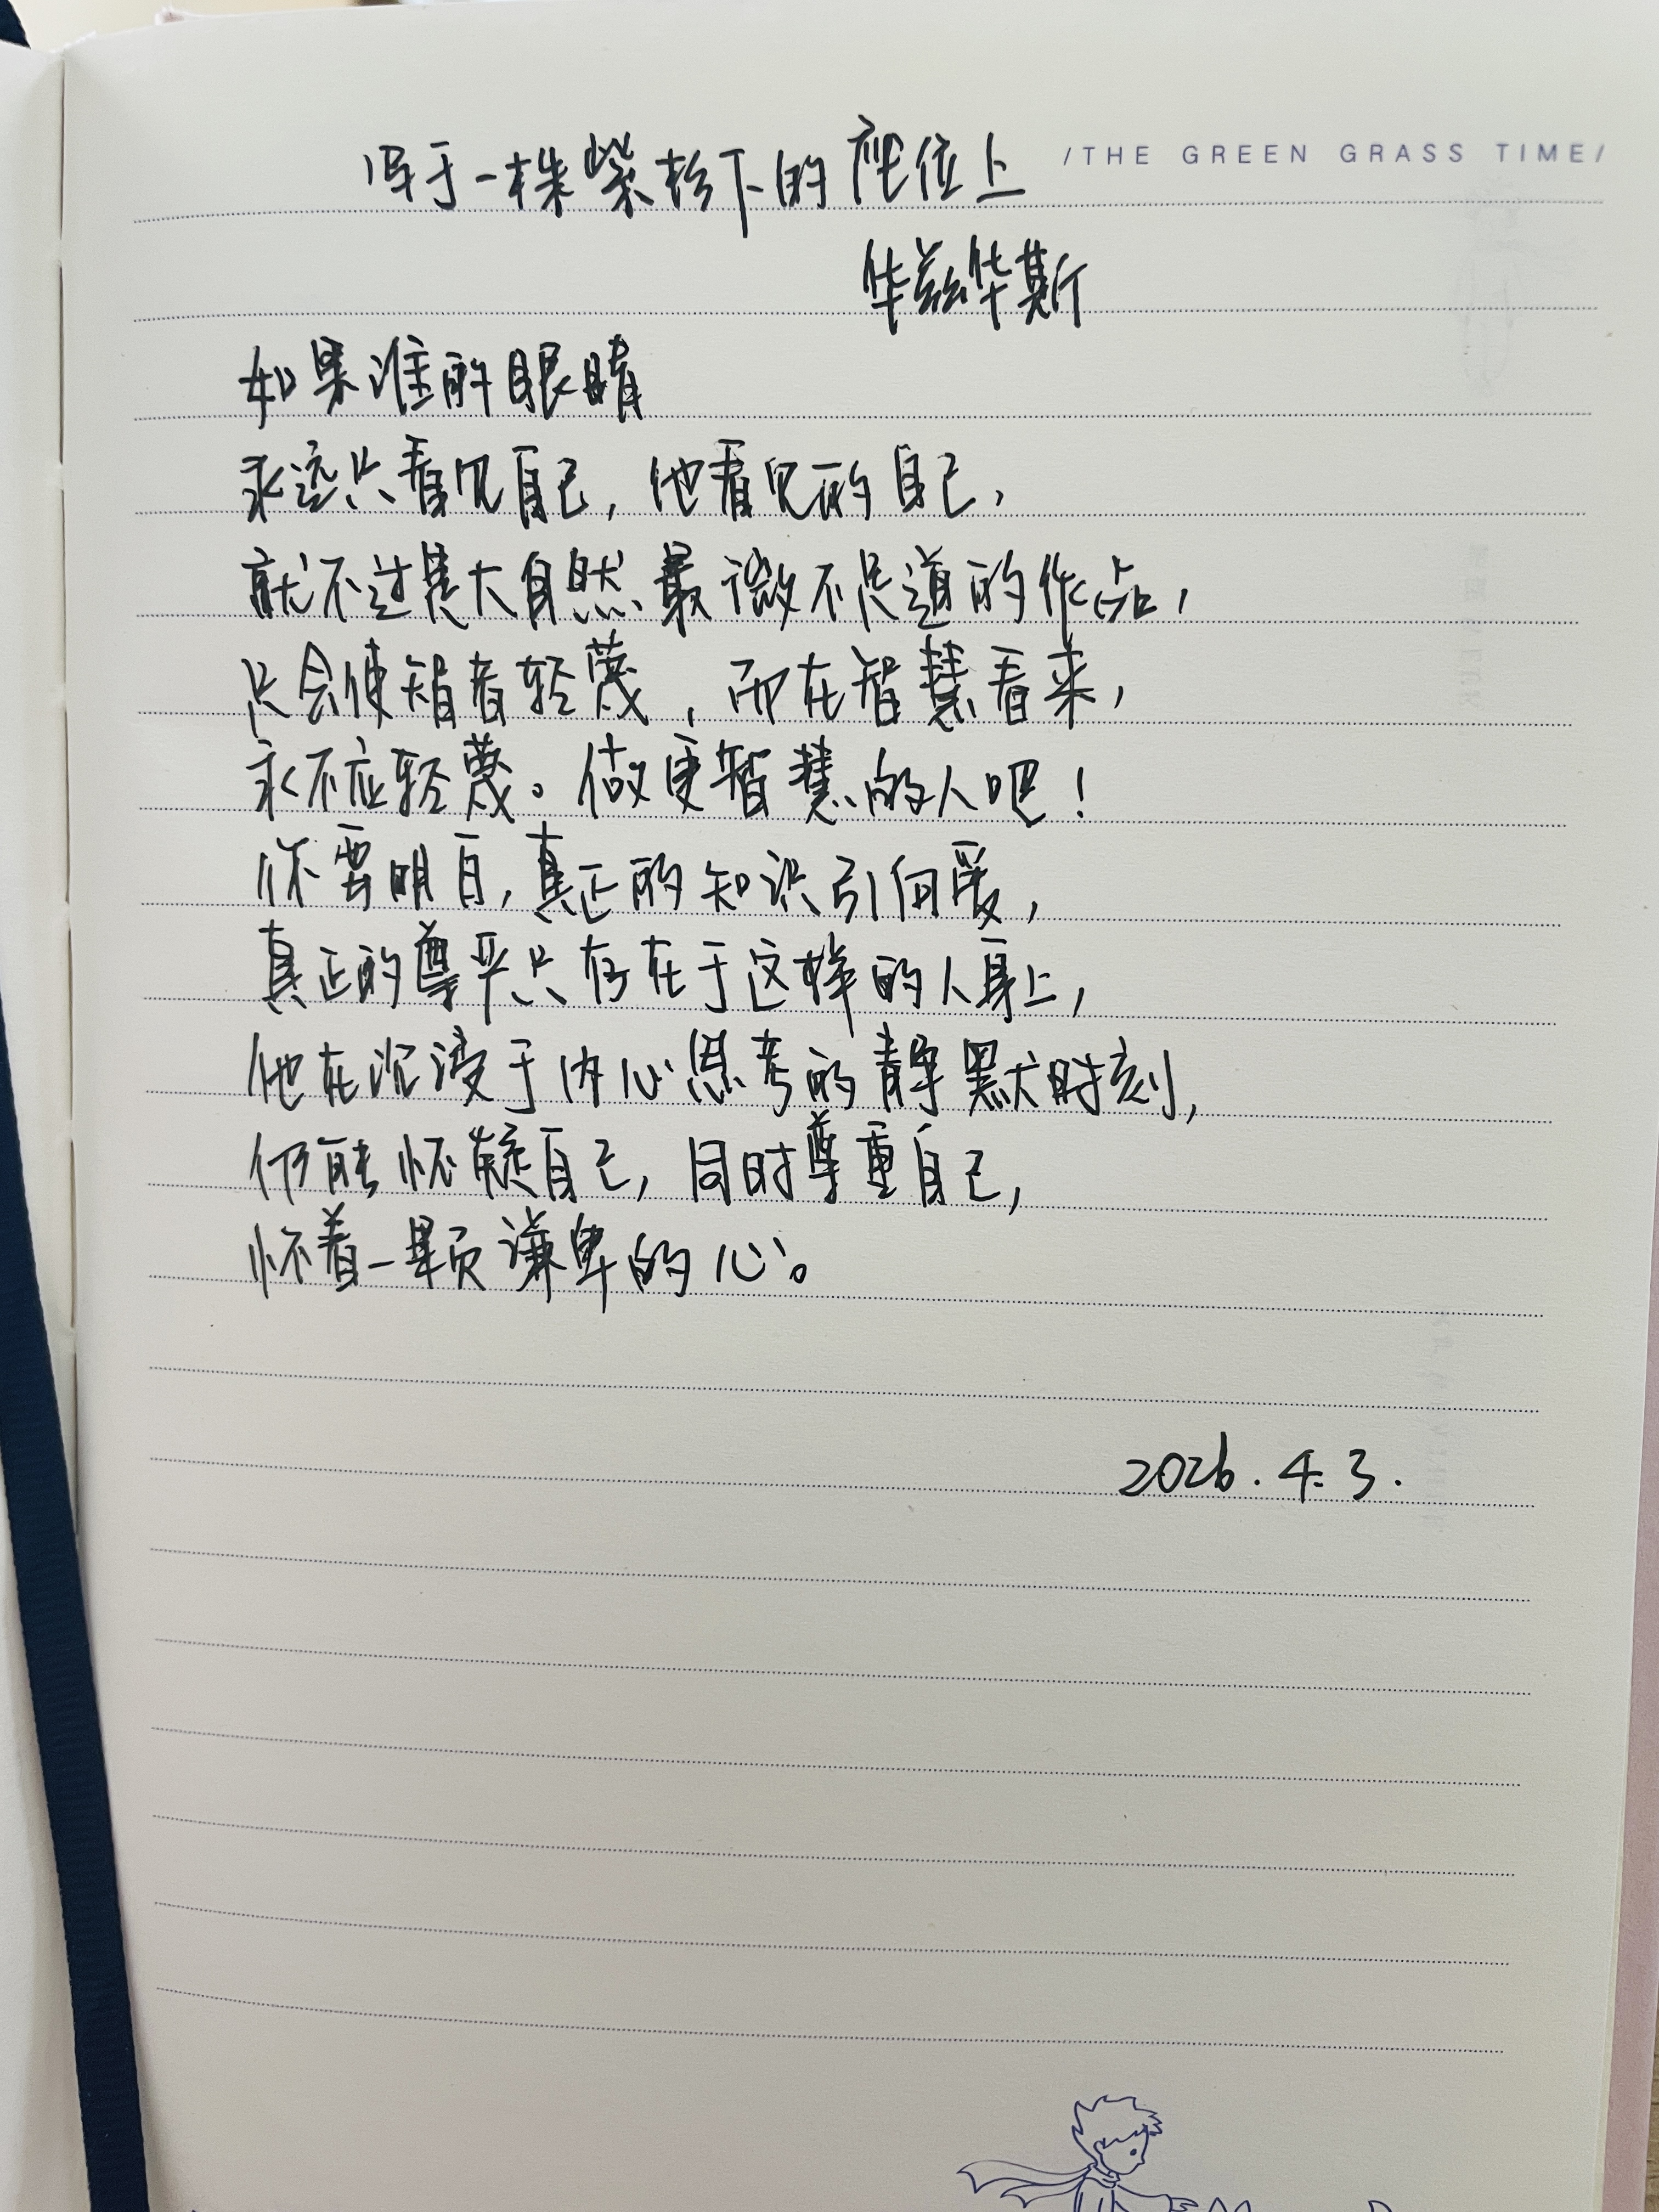 写于一株紫杉下的座位上
/THE GREEN GRASS TIME/
华兹华斯
如果谁的眼睛
永远只看见自己，他看见的自己，
就不过是大自然最微不足道的作品，
只会使智者轻蔑，而在智慧看来，
永不应轻蔑。做更智慧的人吧！
你要明白，真正的知识引向爱，
真正的尊严只存在于这样的人身上，
他在沉浸于内心思考的静默时刻，
仍能怀疑自己，同时尊重自己，
怀着一颗谦卑的心。
2026.4.3.